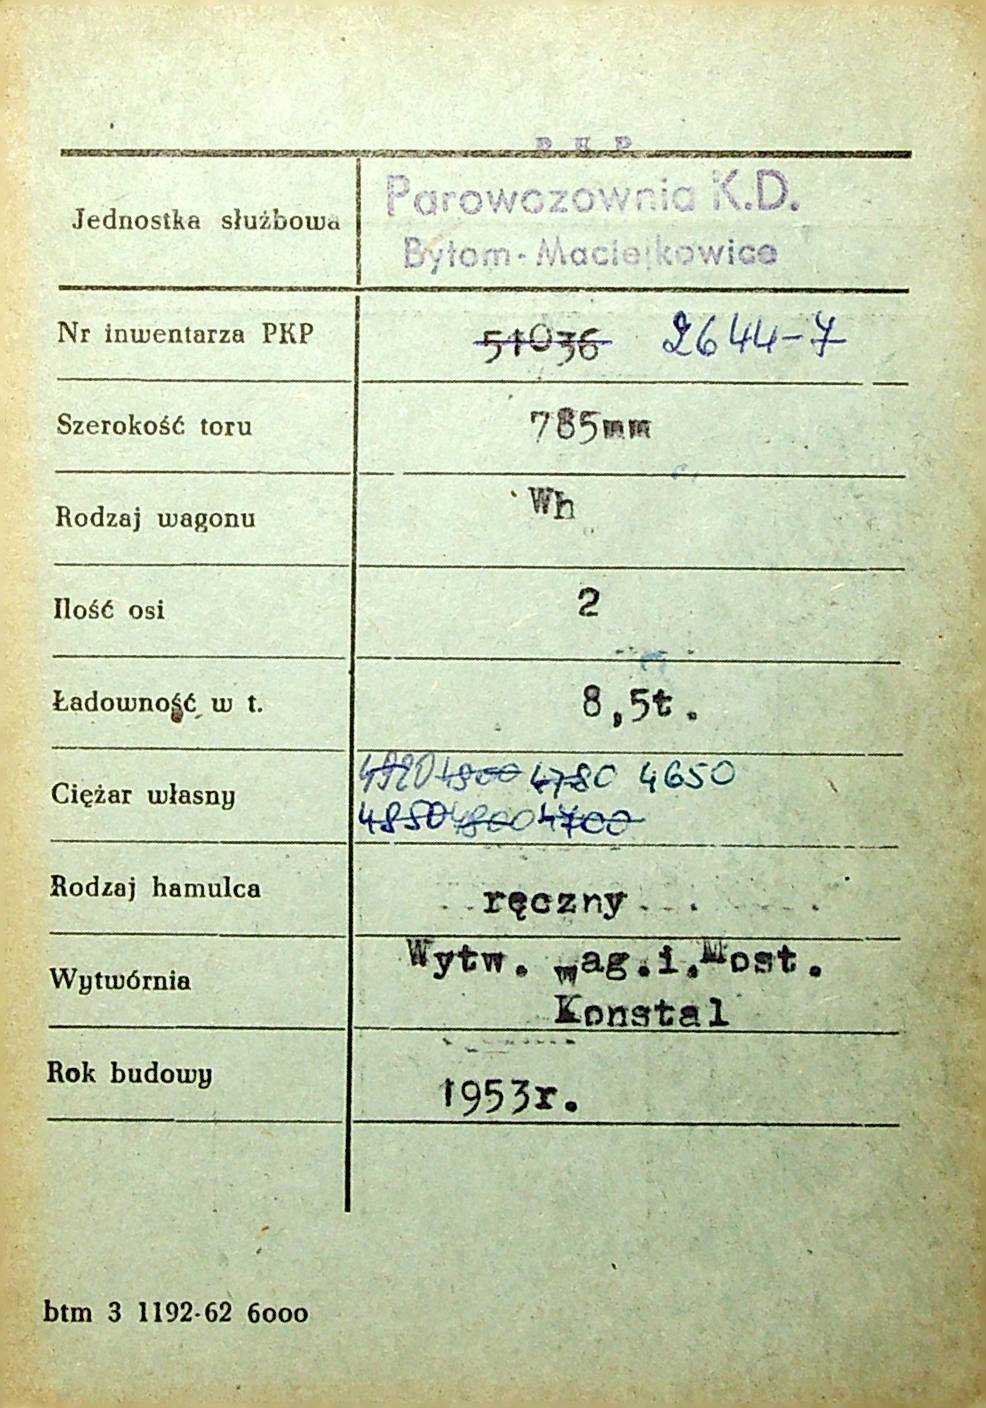 P K P
Jednostka służbowa Parowozownia K.D.
Bytom-Maciejkowice
Nr inwentarza PKP 51036 2644-7
Szerokość toru 785mm
Rodzaj wagonu Wh
Ilość osi 2
Ładowność w t. 8,5t.
4920 4900 4780 4650
Ciężar własny
4850 4800 4700
Rodzaj hamulca ręczny
Wytwórnia Wytw. wag.i.Most.
Konstal
Rok budowy 1953r.
btm 3 1192-62 6000